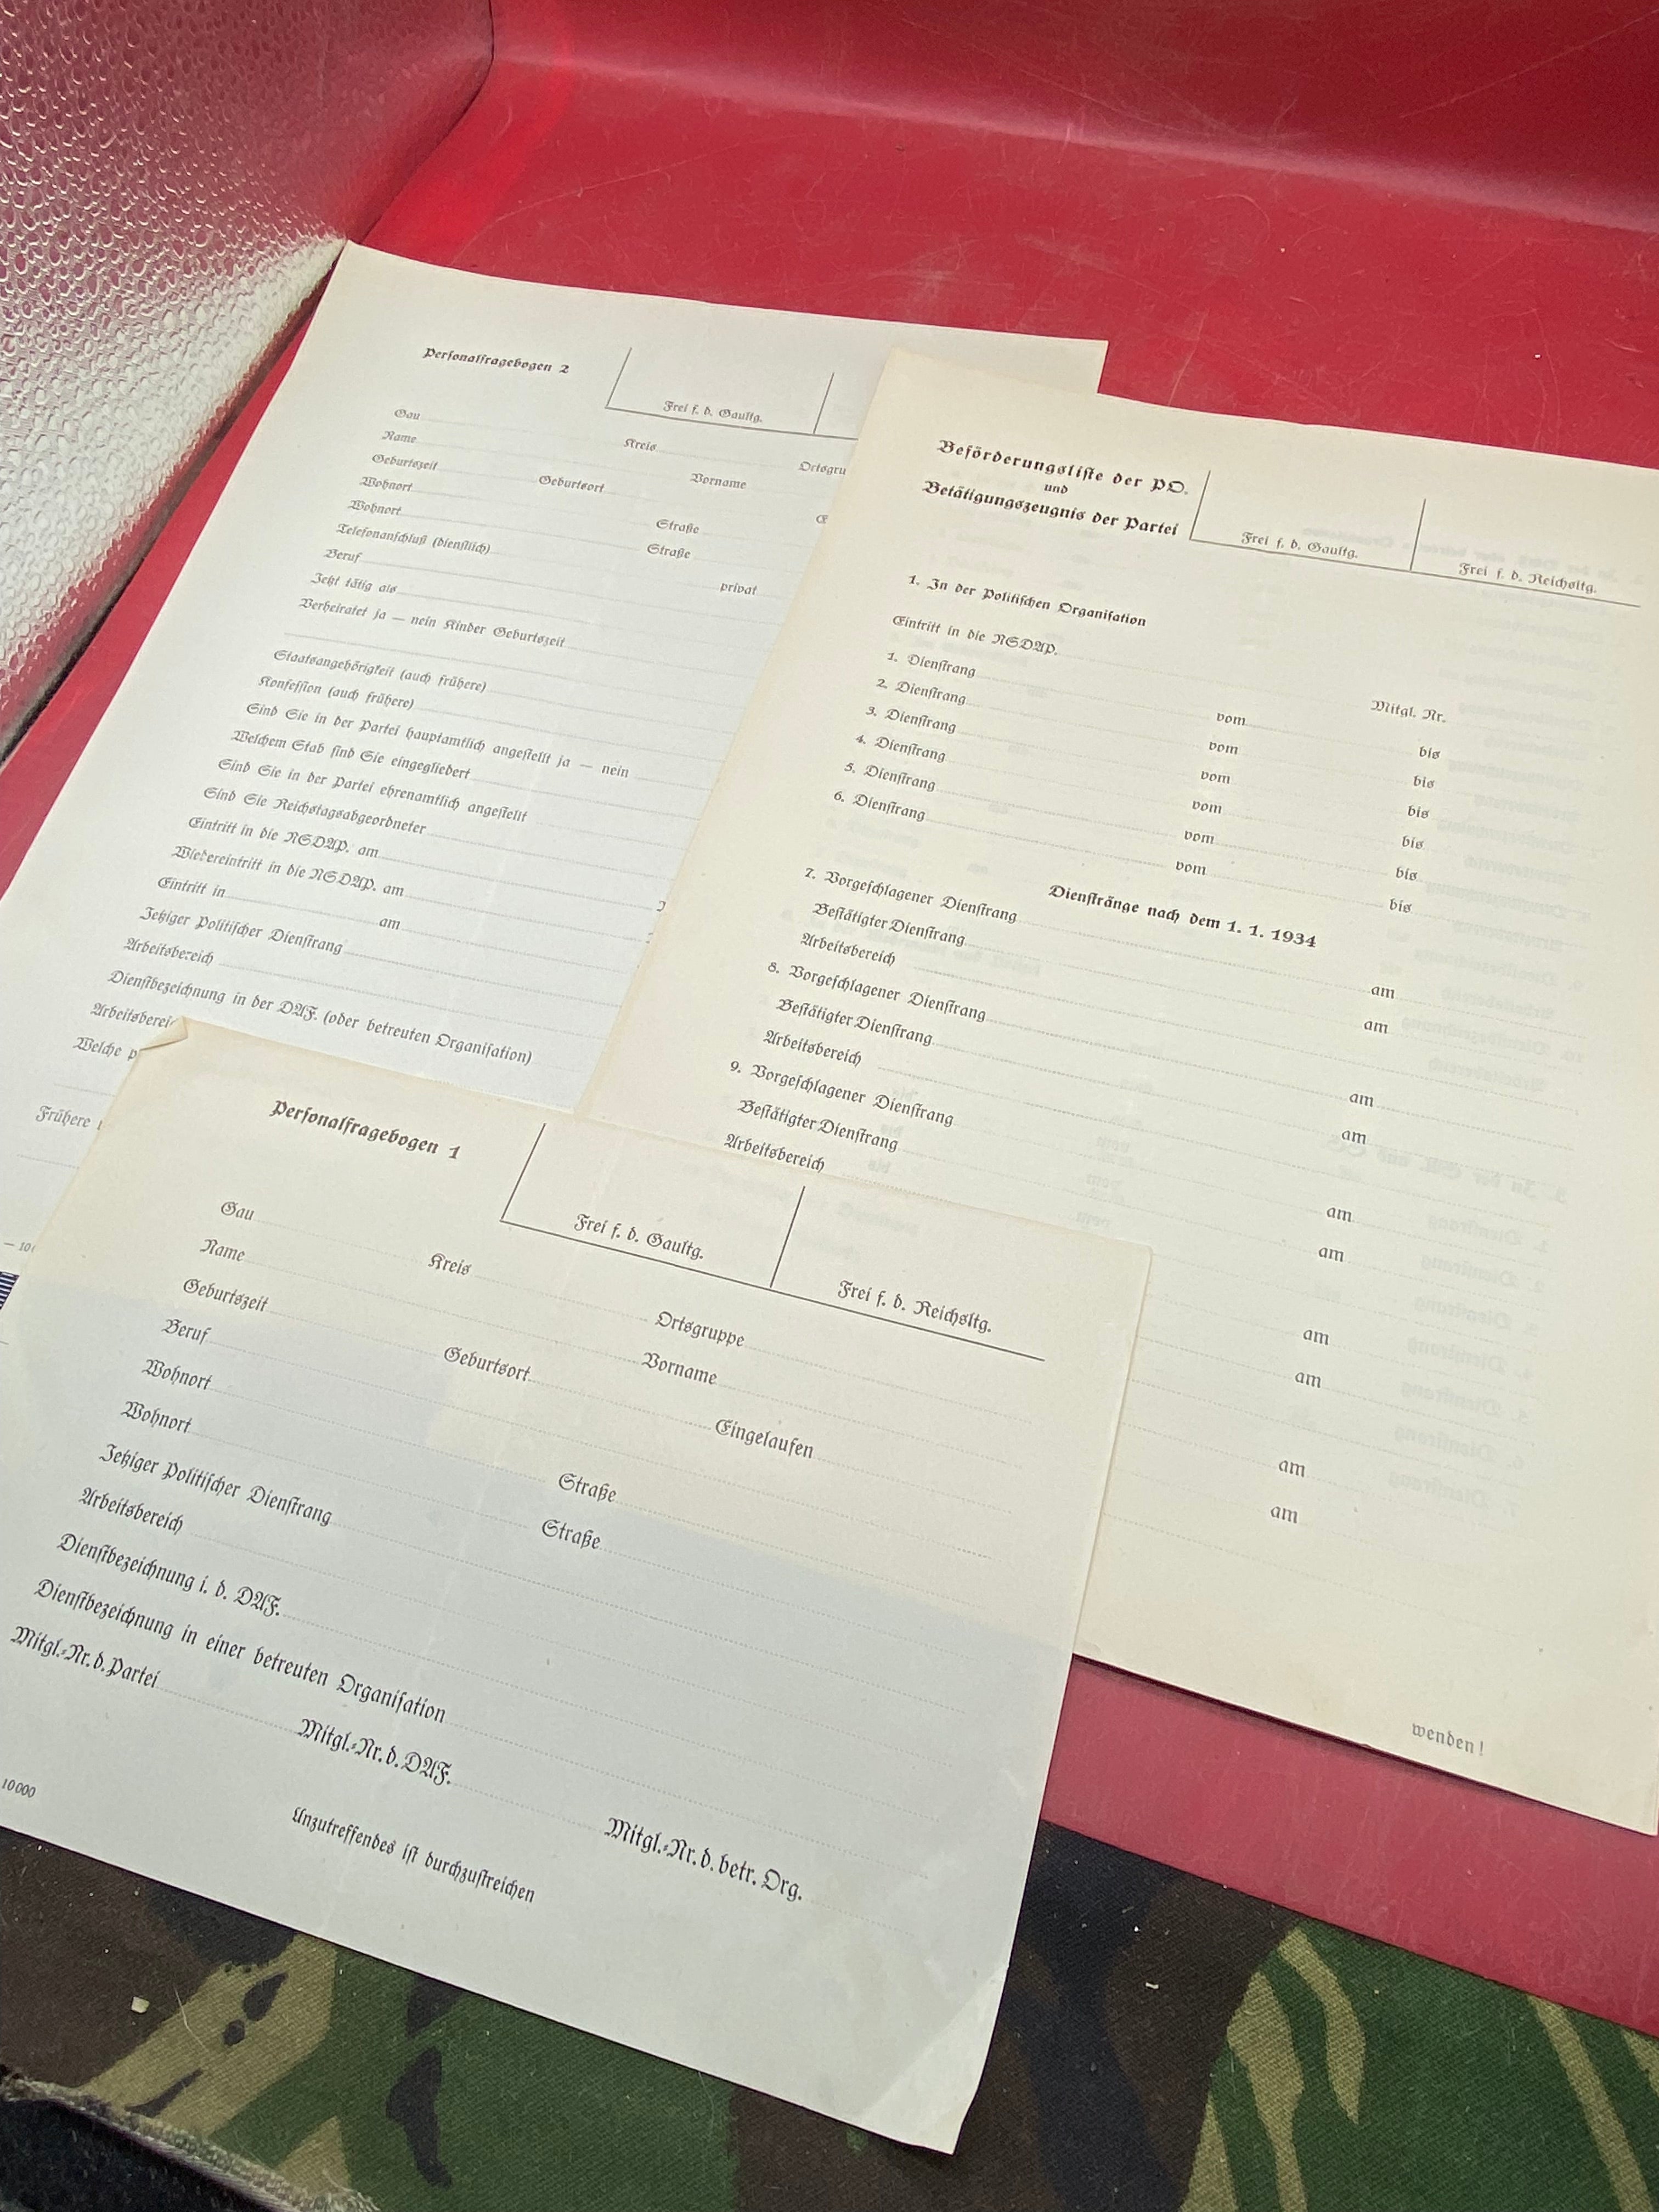 Personalfragebogen 2
Frei f. d. Gaultg.
Gau Kreis Ortsgru
Name Vorname
Geburtszeit Geburtsort
Wohnort Straße
Wohnort Straße
Telefonanschluß (dienstlich) privat
Beruf
Jetzt tätig als
Verheiratet ja — nein Kinder Geburtszeit
Staatsangehörigkeit (auch frühere)
Konfession (auch frühere)
Sind Sie in der Partei hauptamtlich angestellt ja — nein
Welchem Stab sind Sie eingegliedert
Sind Sie in der Partei ehrenamtlich angestellt
Sind Sie Reichstagsabgeordneter
Eintritt in die NSDAP. am
Wiedereintritt in die NSDAP. am
Eintritt in am
Jetziger Politischer Dienstrang
Arbeitsbereich
Dienstbezeichnung in der DAF. (oder betreuten Organisation)
Arbeitsberei
Welche p
Frühere
Beförderungsliste der PO.
und
Betätigungszeugnis der Partei
Frei f. d. Gaultg.
Frei f. d. Reichsltg.
1. In der Politischen Organisation
Eintritt in die NSDAP. Mitgl. Nr.
1. Dienstrang vom bis
2. Dienstrang vom bis
3. Dienstrang vom bis
4. Dienstrang vom bis
5. Dienstrang vom bis
6. Dienstrang vom bis
Dienstränge nach dem 1. 1. 1934
7. Vorgeschlagener Dienstrang am
Bestätigter Dienstrang am
Arbeitsbereich
8. Vorgeschlagener Dienstrang am
Bestätigter Dienstrang am
Arbeitsbereich
9. Vorgeschlagener Dienstrang am
Bestätigter Dienstrang am
Arbeitsbereich
am
am
am
am
wenden!
Personalfragebogen 1
Frei f. d. Gaultg.
Frei f. d. Reichsltg.
Gau Kreis Ortsgruppe
Name Vorname
Geburtszeit Geburtsort Eingelaufen
Beruf
Wohnort Straße
Wohnort Straße
Jetziger Politischer Dienstrang
Arbeitsbereich
Dienstbezeichnung i. d. DAF.
Dienstbezeichnung in einer betreuten Organisation
Mitgl.-Nr. d. Partei Mitgl.-Nr. d. DAF. Mitgl.-Nr. d. betr. Org.
Unzutreffendes ist durchzustreichen
10000